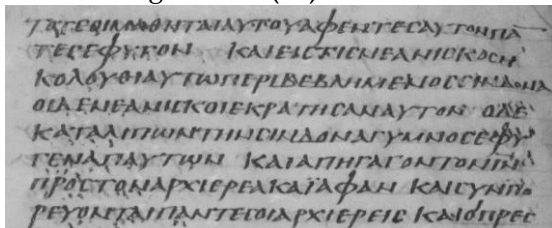 ΤΟΤΕΟΙΜΑΘΗΤΑΙΑΥΤΟΥΑΦΕΝΤΕϹΑΥΤΟΝΠΑ
ΤΕϹΕΦΥΓΟΝ ΚΑΙΕΙϹΤΙϹΝΕΑΝΙϹΚΟϹΗ
ΚΟΛΟΥΘΙΑΥΤΩΠΕΡΙΒΕΒΛΗΜΕΝΟϹϹΙΝΔΟΝΑ
ΟΙΔΕΝΕΑΝΙϹΚΟΙΕΚΡΑΤΗϹΑΝΑΥΤΟΝ ΟΔΕ
ΚΑΤΑΛΙΠΩΝΤΗΝϹΙΝΔΟΝΑΓΥΜΝΟϹΕΦΥ
ΓΕΝΑΠΑΥΤΩΝ ΚΑΙΑΠΗΓΑΓΟΝΤΟΝΙΝ
ΠΡΟϹΤΟΝΑΡΧΙΕΡΕΑΚΑΪΑΦΑΝ ΚΑΙϹΥΝΠΟ
ΡΕΥΟΝΤΑΙΠΑΝΤΕϹΟΙΑΡΧΙΕΡΕΙϹ ΚΑΙΟΙΠΡΕϹ